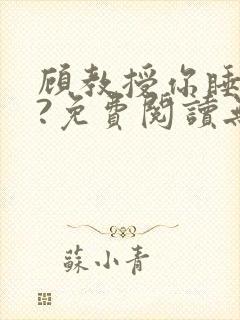 顾教授你睡
?免費閱讀
蘇小青